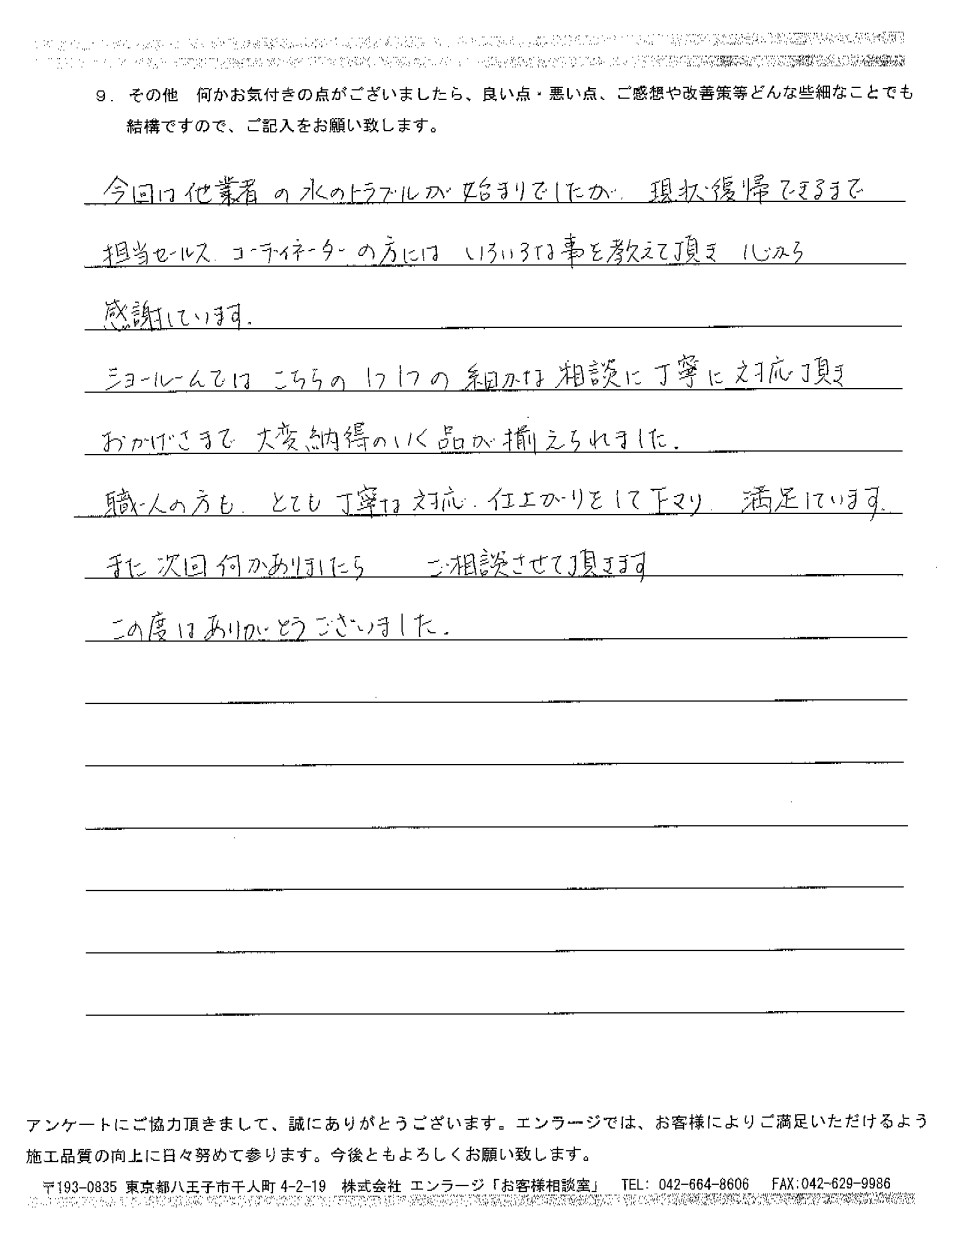 ９．その他　何かお気付きの点がございましたら、良い点・悪い点、ご感想や改善策等どんな些細なことでも
結構ですので、ご記入をお願い致します。
今回は他業者の水のトラブルが始まりでしたが、現状復帰できるまで
担当セールス、コーディネーターの方には いろいろな事を教えて頂き 心から
感謝しています。
ショールームではこちらの１つ１つの細かな相談に丁寧に対応頂き
おかげさまで 大変納得のいく品が揃えられました。
職人の方も、とても丁寧な対応、仕上がりをして下マリ、満足しています。
また次回何かありましたら　ご相談させて頂きます
この度はありがとうございました。
アンケートにご協力頂きまして、誠にありがとうございます。エンラージでは、お客様によりご満足いただけるよう
施工品質の向上に日々努めて参ります。今後ともよろしくお願い致します。
〒193-0835 東京都八王子市千人町 4-2-19　株式会社 エンラージ「お客様相談室」　TEL: 042-664-8606　FAX:042-629-9986